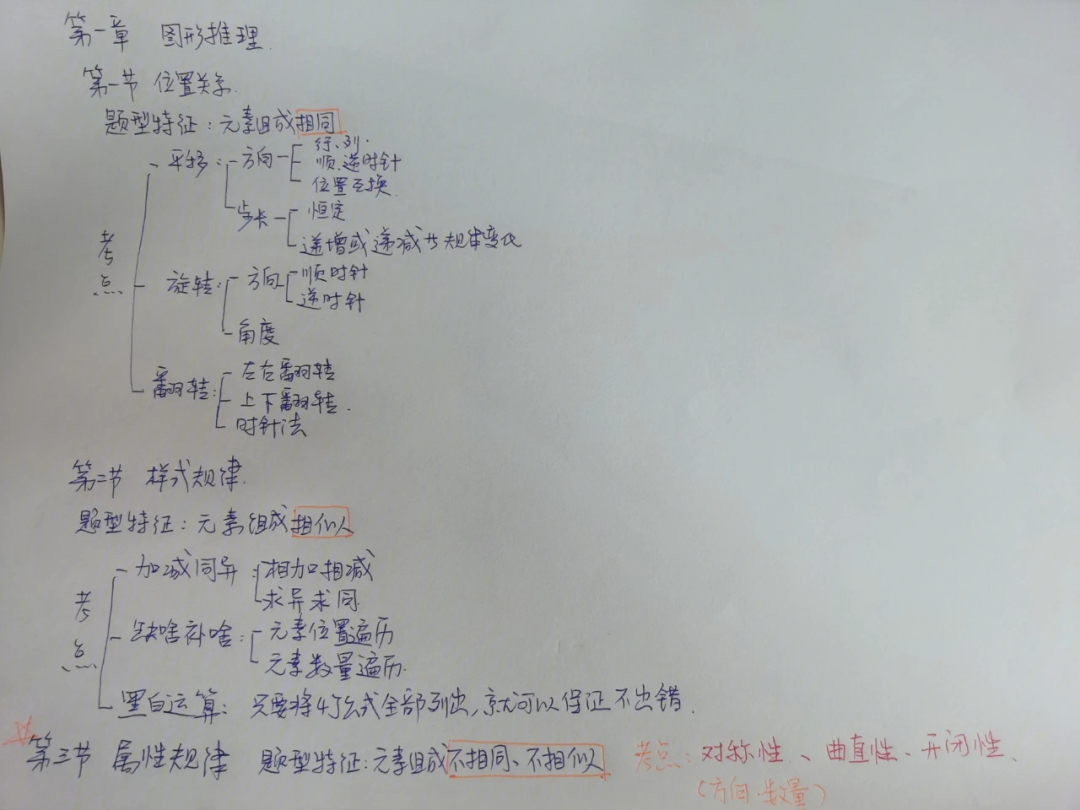 第一章 图形推理
第一节 位置关系.
题型特征：元素组成相同
考点
平移：方向
行、列.
顺.逆时针
位置互换.
步长
恒定
递增或递减等规律变化
旋转：方向
顺时针
逆时针
角度
翻转：
左右翻转
上下翻转.
时针法
第二节 样式规律.
题型特征：元素组成相似
考点
加减同异：相加相减
求异求同
缺啥补啥：元素位置遍历
元素数量遍历.
黑白运算：只要将4个公式全部列出,就可以保证不出错.
第三节 属性规律 题型特征：元素组成不相同、不相似 考点：对称性、曲直性、开闭性、
(方向.数量)